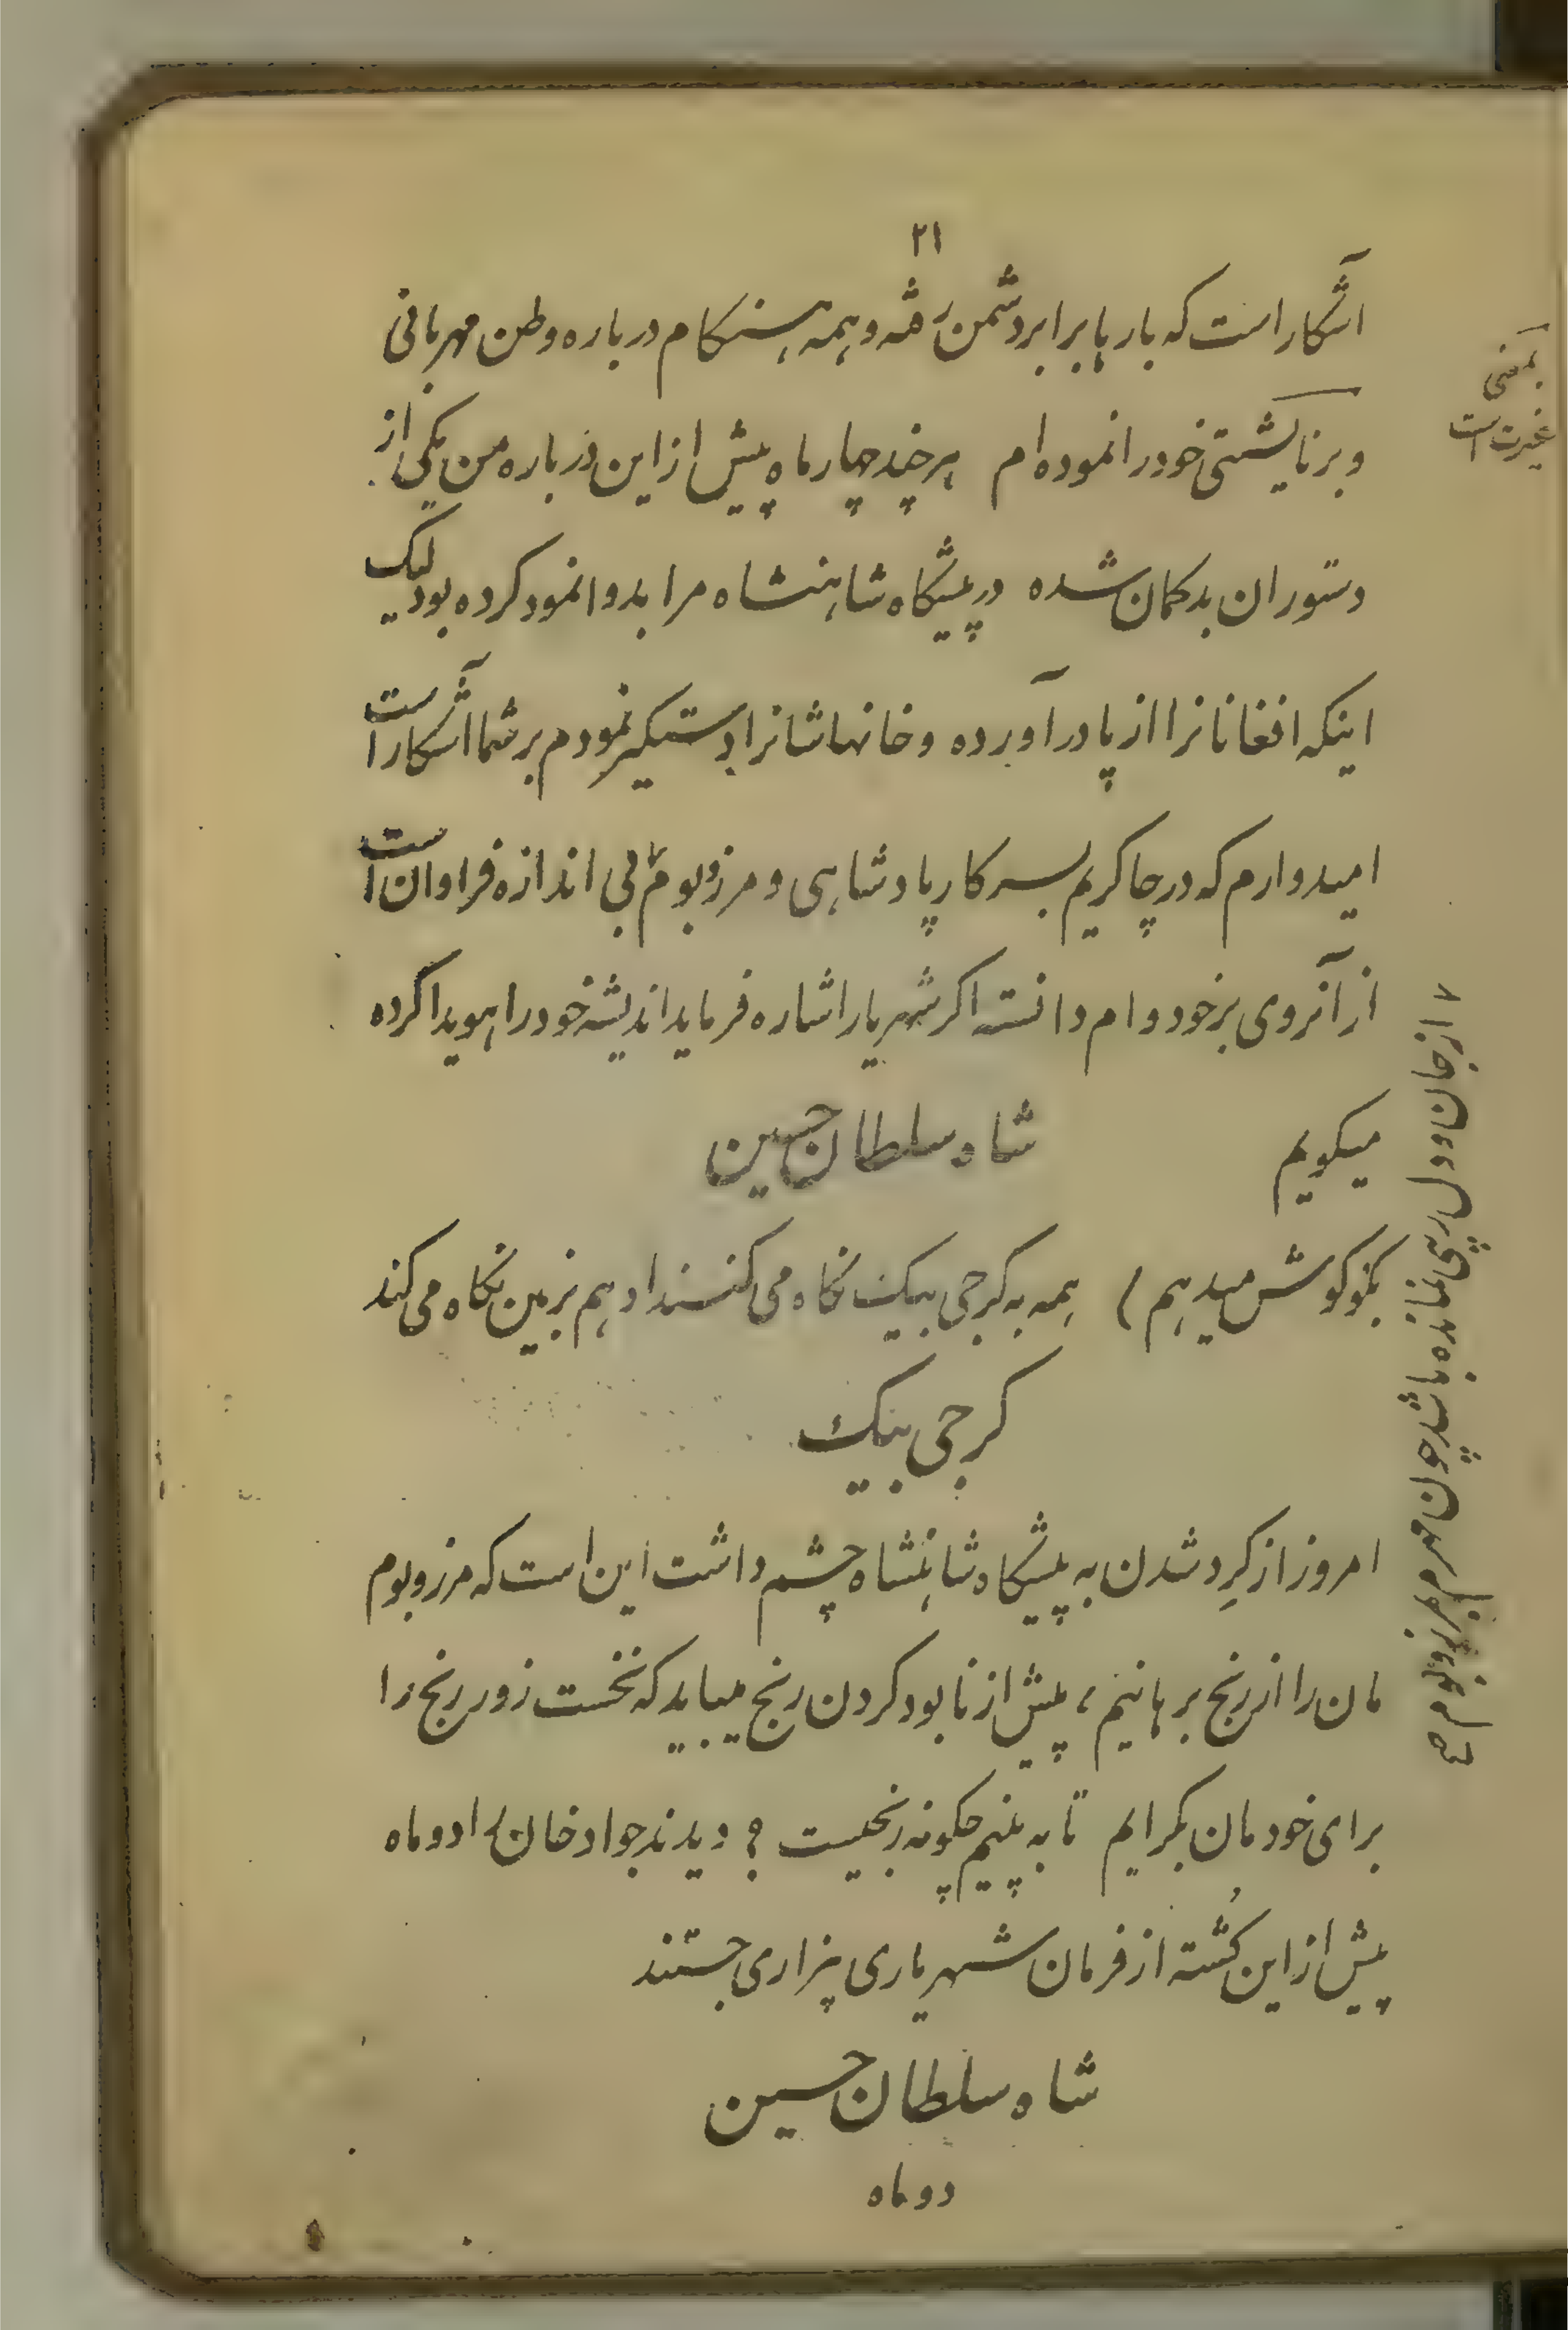 ۲۱
آشکار است که بارها برابر دشمن رفته و همه هنگام درباره وطن مهربانی
و برنایشتی خود را نموده ام هرچند چهار ماه پیش از این درباره من یکی از
دستوران بدکمان شده در پیشگاه شاهنشاه مرا بد وانمود کرده بود لیک
اینکه افغانانرا از پا درآورده و خانهاشانرا دستکیر نمودم بر شما آشکار است
امیدوارم که در چاکریم بسرکار پادشاهی و مرز و بوم بی اندازه فراوان است
از آنروی بر خود وام دانسته اکر شهریار اشاره فرماید اندیشه خود را هویدا کرده
میکویم
شاه سلطان حسین
بکو کوش میدهم) همه به کرجی بیک نکاه می کنند او هم بزمین نکاه می کند
کرجی بیک
امروز از کِرد شدن به پیشکاه شاهنشاه چشم داشت این است که مرز و بوم
مان را از رنج برهانیم، پیش از نابود کردن رنج میباید که نخست زور رنج را
برای خودمان بکرایم تا به بینیم چکونه رنجیست ؟ دیدند جواد خان) دو ماه
پیش از این کُشته از فرمان شهریاری بیزاری جستند
شاه سلطان حسین
دو ماه
بمعنی
غیرت است
از جان و دل پی نمانده باشد چون مهرم بمرز و بوم